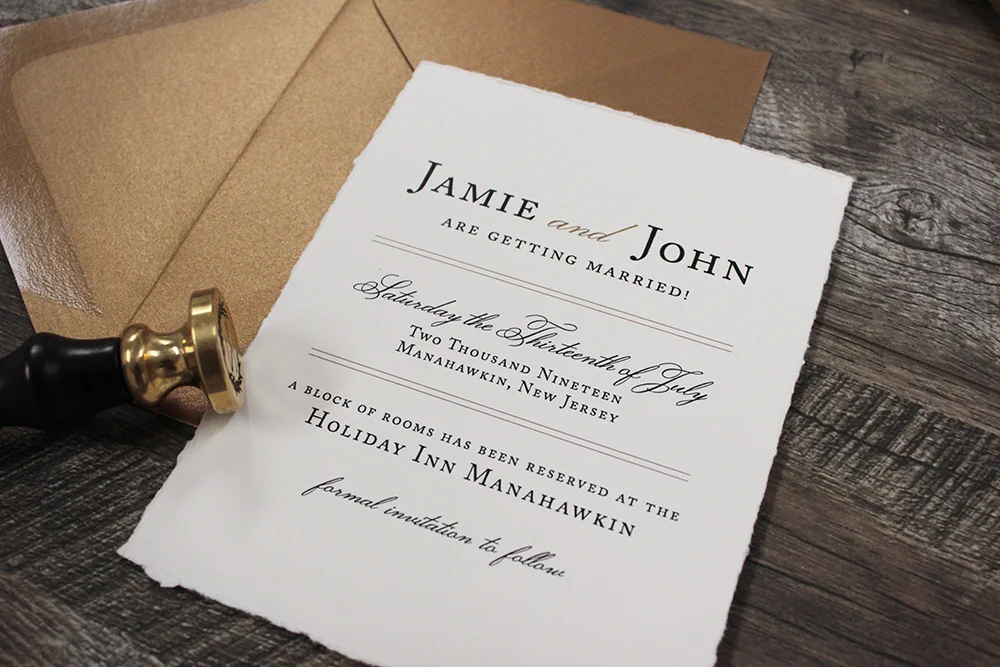 JAMIE and JOHN
ARE GETTING MARRIED!
Saturday the Thirteenth of July
TWO THOUSAND NINETEEN
MANAHAWKIN, NEW JERSEY
A BLOCK OF ROOMS HAS BEEN RESERVED AT THE
HOLIDAY INN MANAHAWKIN
formal invitation to follow